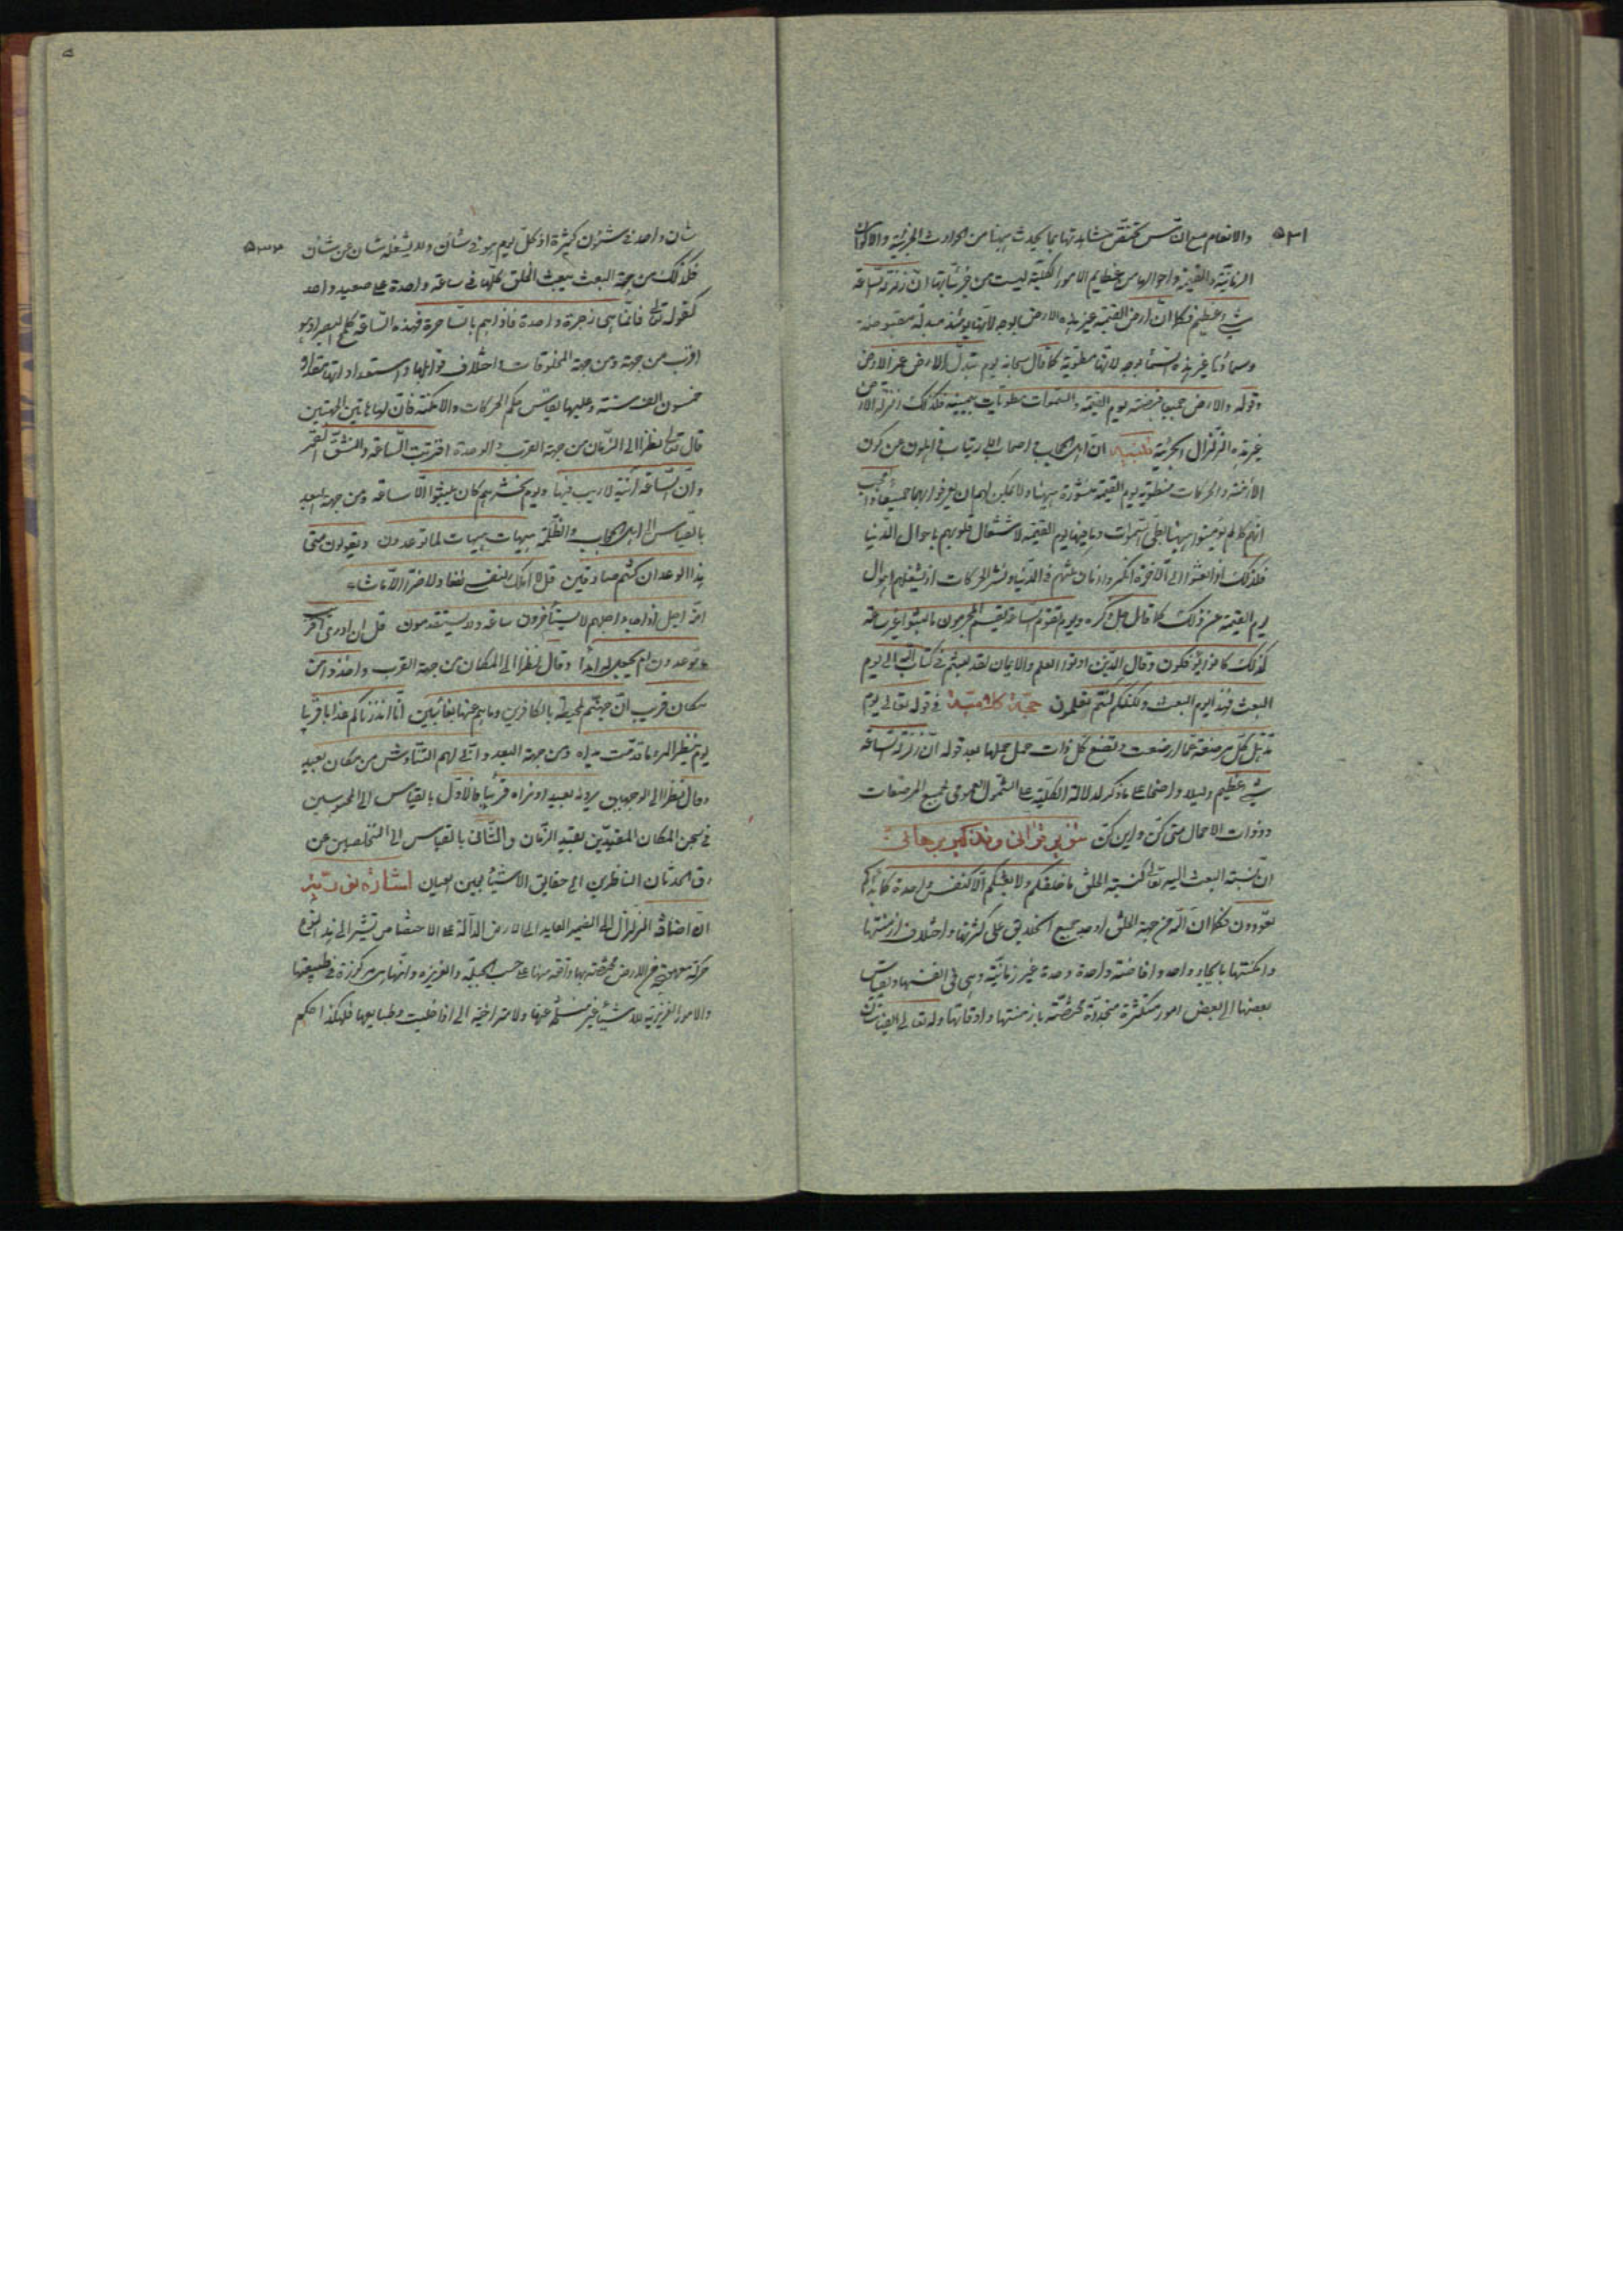 ٥٣١
والانعام مع ان الناس تختص مشاهدتها بما يحدث ههنا من الحوادث الجزئية والاكوان
الزمانية والقيمة واحوالها من عظايم الامور الكلية ليست من جزئياتها ان زلزلة الساعة
شيء عظيم فكما ان ارض القيمة غير هذه الارض بوجه لانها يومئذ مبدلة مقبوضة
وسماؤنا غير هذه السماء بوجه لانها مطوية كما قال سبحانه يوم تبدل الارض غير الارض
وقوله والارض جميعا قبضته يوم القيمة والسموات مطويات بيمينه فكذلك زلزلة الارض
غير هذه الزلازل الجزئية تنبيه ان اهل الحجاب واصحاب الارتياب ذاهلون عن كون
الازمنة والحركات منطوية يوم القيمة منشورة ههنا ولا يمكن لهم ان يعرفوا بهما جميعا
انهم كما لم يؤمنوا ههنا بطي السموات وما فيها يوم القيمة لاشتغال قلوبهم باحوال الدنيا
فكذلك اذا بعثوا الى الآخرة انكروا زمان لبثهم في الدنيا ونشر الحركات اذ يشغلهم اهوال
يوم القيمة عن ذلك كما قال جل ذكره ويوم تقوم الساعة يقسم المجرمون ما لبثوا غير ساعة
كذلك كانوا يؤفكون وقال الذين اوتوا العلم والايمان لقد لبثتم في كتاب الله الى يوم
البعث فهذا يوم البعث ولكنكم كنتم لا تعلمون حجة كلامية في قوله تعالى يوم
تذهل كل مرضعة عما ارضعت وتضع كل ذات حمل حملها بعد قوله ان زلزلة الساعة
شيء عظيم دليلا واضحا على ما ذكر لدلالة الكلية على الشمول العمومي لجميع المرضعات
وذوات الاحمال متى كن واين كن تنوير قرآني وتذكير برهاني
ان نسبة البعث اليه تعالى كنسبة الخلق ما خلقكم ولا بعثكم الا كنفس واحدة كما بدأكم
تعودون فكما ان الله من جهة الخلق اوجد جميع الخلايق على كثرتها واختلاف ازمنتها
وامكنتها بايجاد واحد وافاضة واحدة وحدة غير زمانية وهي في انفسها وبقياس
بعضها الى بعض امور متكثرة متجددة مختصة بازمنتها واوقاتها وله تعالى
٥٣٢
شان واحد في شئون كثيرة اذ كل يوم هو في شان ولا يشغله شان عن شان
فكذلك من جهة البعث يبعث الخلق كلها في ساعة واحدة على صعيد واحد
كقوله تعالى فانما هي زجرة واحدة فاذا هم بالساهرة فهذه الساعة كلمح البصر او هو
اقرب من جهة ومن جهة المخلوقات واختلاف قوابلها واستعداداتها مقداره
خمسون الف سنة وعليها يقاس حكم الحركات والامكنة فان لها هاتين الجهتين
قال تعالى نظرا الى الزمان من جهة القرب والوحدة اقتربت الساعة وانشق القمر
وان الساعة آتية لا ريب فيها ويوم يحشرهم كان لم يلبثوا الا ساعة ومن جهة البعد
بالقياس الى اهل الحجاب والظلمة هيهات هيهات لما توعدون ويقولون متى
هذا الوعد ان كنتم صادقين قل لا املك لنفسي نفعا ولا ضرا الا ما شاء
امة اجل اذا جاء اجلهم لا يستأخرون ساعة ولا يستقدمون قل ان ادري اقريب
ما توعدون ام يجعل له امدا وقال نظرا الى المكان من جهة القرب واخذوا من
مكان قريب ان جهنم لمحيطة بالكافرين وما هم عنها بغائبين انا انذرناكم عذابا قريبا
يوم ينظر المرء ما قدمت يداه ومن جهة البعد وانى لهم التناوش من مكان بعيد
وقال نظرا الى الوجهين يرونه بعيدا ونراه قريبا فالاول بالقياس الى المحبوسين
في سجن المكان المقيدين بقيد الزمان والثاني بالقياس الى المتخلصين عن
رق الحدثان الناظرين الى حقايق الاشياء بعين العيان اشارة نورية
ان اضافة الزلزال الى الضمير العايد الى الارض الدالة على الاختصاص تشير الى هذا النوع
حركة معهودة من الارض مختصة بها واقعة منها على حسب الجبلة والغريزة وانها امر مركوزة في طبيعتها
والامور الغريزية للاشياء غير منسلخة عنها ولا متراخية الى اذا خليت وطبايعها فلهذا احكم